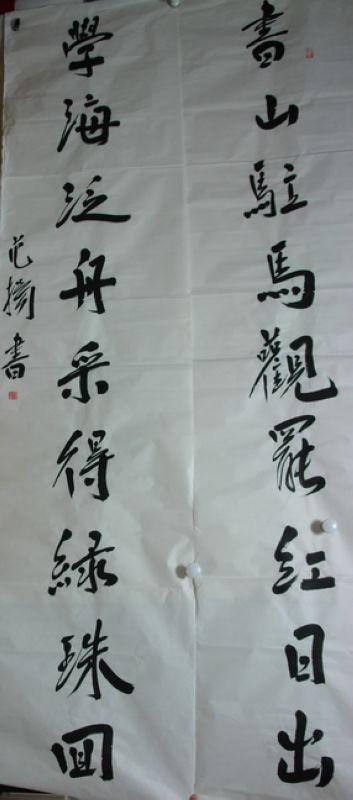 書山駐馬觀罷紅日出
學海泛舟采得緑珠回
范擕書